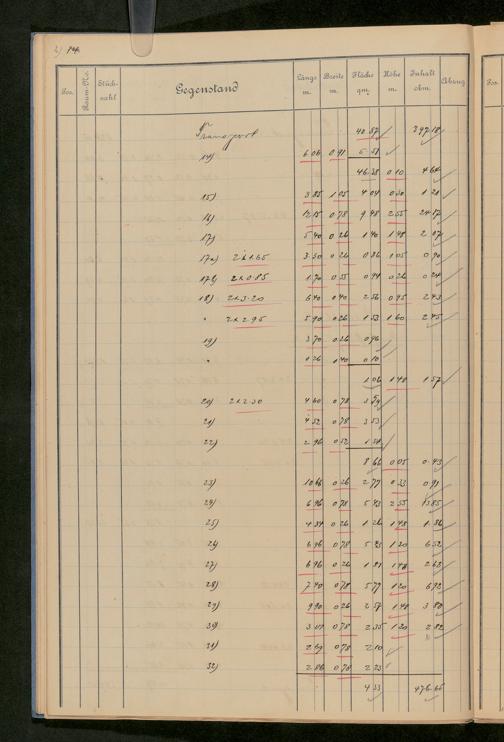 Pos. Raum-No. Stückzahl Gegenstand Länge m. Breite m. Fläche qm. Höhe m. Inhalt cbm. Abzug Pos.
Transport 40 87 297.18
14) 6.06 0 91 5 51
46 38 0 10 4 64
15) 3.85 1.05 4 04 0 30 1 21
16) 12.15 0.78 9 48 2.55 24.17
17) 5.40 0.26 1.40 1.48 2 07
17a) 3.30 0.26 0.86 1.05 0 90
17b) 2 x 0.85 1.70 0.55 0 94 0.26 0 24
18) 2 x 3.20 6.40 0.40 2.56 0.95 2.43
" 2 x 2.95 5.90 0.26 1.53 1.60 2.45
19) 3.70 0.26 0.96
" 0.26 0.10
1.06 1.48 1.57
20) 2 x 2.30 4.60 0.78 3 59
21) 4 52 0.78 3.53
22) 2.96 0.52 1.54
8 66 0.05 0.43
23) 10.66 0.26 2.77 0.33 0.91
24) 6.96 0.78 5.43 2.55 13.85
25) 4.84 0.26 1.26 1.48 1.86
26) 6.96 0.78 5.43 1.20 6.52
27) 6.96 0.26 1.81 1.48 2.68
28) 7.40 0.78 5.77 1.20 6.92
29) 9.90 0.26 2.57 1.48 3 80
30) 3.01 0.78 2.35 1.20 2.82
31) 2.69 0.78 2.10
32) 2.86 0.78 2.23
4 33 476.65